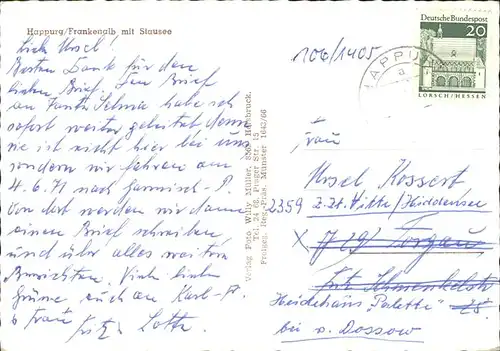 Happurg/Frankenalb mit Stausee
Lieb Ursel!
Besten Dank für den
lieben Brief. Den Brief
an Tante Selma habe ich
sofort weiter geleitet denn
sie ist nicht hier bei uns
sondern wir fahren am
4.6.71 nach Garmisch-P.
Von dort werden wir dann
einen Brief schreiben
und über alles weitere
berichten. Viele liebe
Grüsse auch an Karl-H.
u Frau Fritz Lotte
Verlag Foto Willy Müller, 8562 Hersbruck.
Tel. 24 82, Prager Str. 15
Franken. Reg.-Präs. Münster 1643/66
106/1405
HAPPURG
a
Deutsche Bundespost
20
LORSCH/HESSEN
Frau
Ursel Kossert
2359 z.Zt. Vitte/Hiddensee
x 729 Torgau
Heidehaus „Palette"
bei v. Dossow